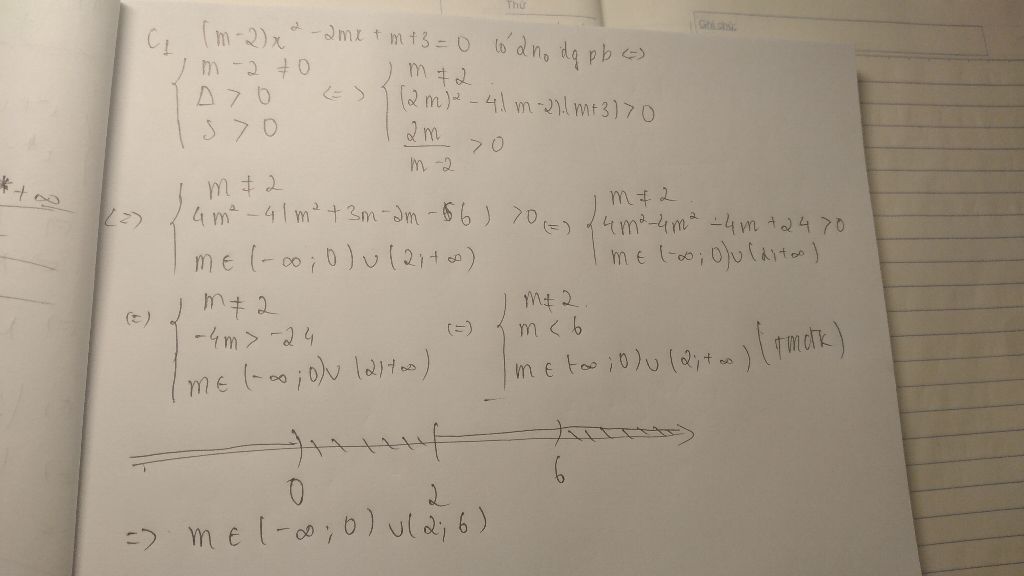 Thứ
Ghi chú:
C1 (m-2)x² - 2mx + m+3 = 0 có 2 no dg pb <=>
{ m - 2 ≠ 0
Δ > 0
S > 0
<=> { m ≠ 2
(2m)² - 4(m-2).(m+3) > 0
2m/(m-2) > 0
*+∞
<=> { m ≠ 2
4m² - 4(m² + 3m - 2m - 6) > 0
m ∈ (-∞; 0) ∪ (2; +∞)
<=> { m ≠ 2
4m² - 4m² - 4m + 24 > 0
m ∈ (-∞; 0) ∪ (2; +∞)
<=> { m ≠ 2
-4m > -24
m ∈ (-∞; 0) ∪ (2; +∞)
<=> { m ≠ 2
m < 6
m ∈ (-∞; 0) ∪ (2; +∞) (tmđk)
0 2 6
=> m ∈ (-∞; 0) ∪ (2; 6)